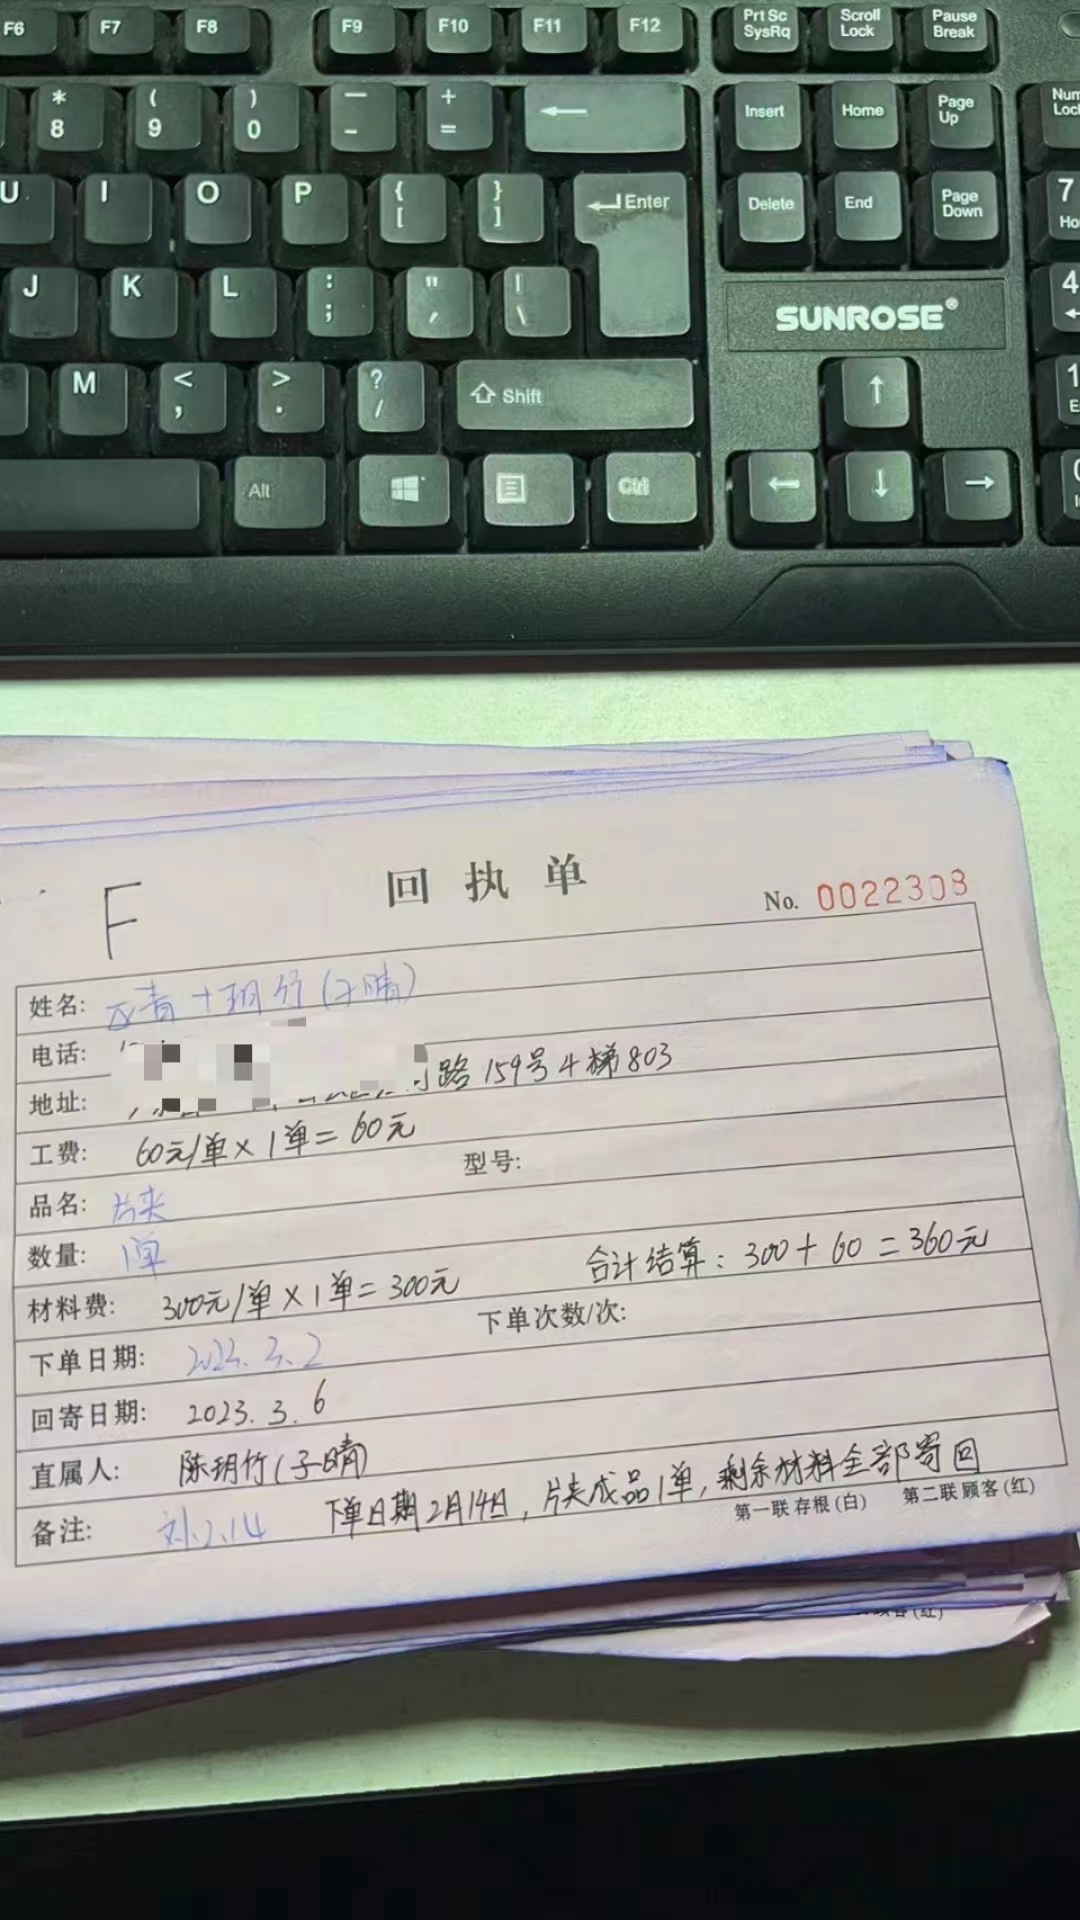 F6 F7 F8 F9 F10 F11 F12 Prt Sc SysRq Scroll Lock Pause Break
* 8 ( 9 ) 0 — - + = Insert Home Page Up Num Lock
U I O P { [ } ] Enter Delete End Page Down 7
J K L : ; " , | \ SUNROSE® 4
M < , > . ? / Shift 1
Alt Ctrl
F
回执单
No. 0022308
姓名: 青+玥竹(子晴)
电话:
地址: 路159号4梯803
工费: 60元/单×1单=60元
型号:
品名: 片夹
数量: 1单
材料费: 300元/单×1单=300元
合计结算: 300+60=360元
下单日期: 2023.3.2
下单次数/次:
回寄日期: 2023.3.6
直属人: 陈玥竹(子晴)
备注: 刘2.14 下单日期2月14日,片夹成品1单,剩余材料全部寄回
第一联 存根(白) 第二联 顾客(红)